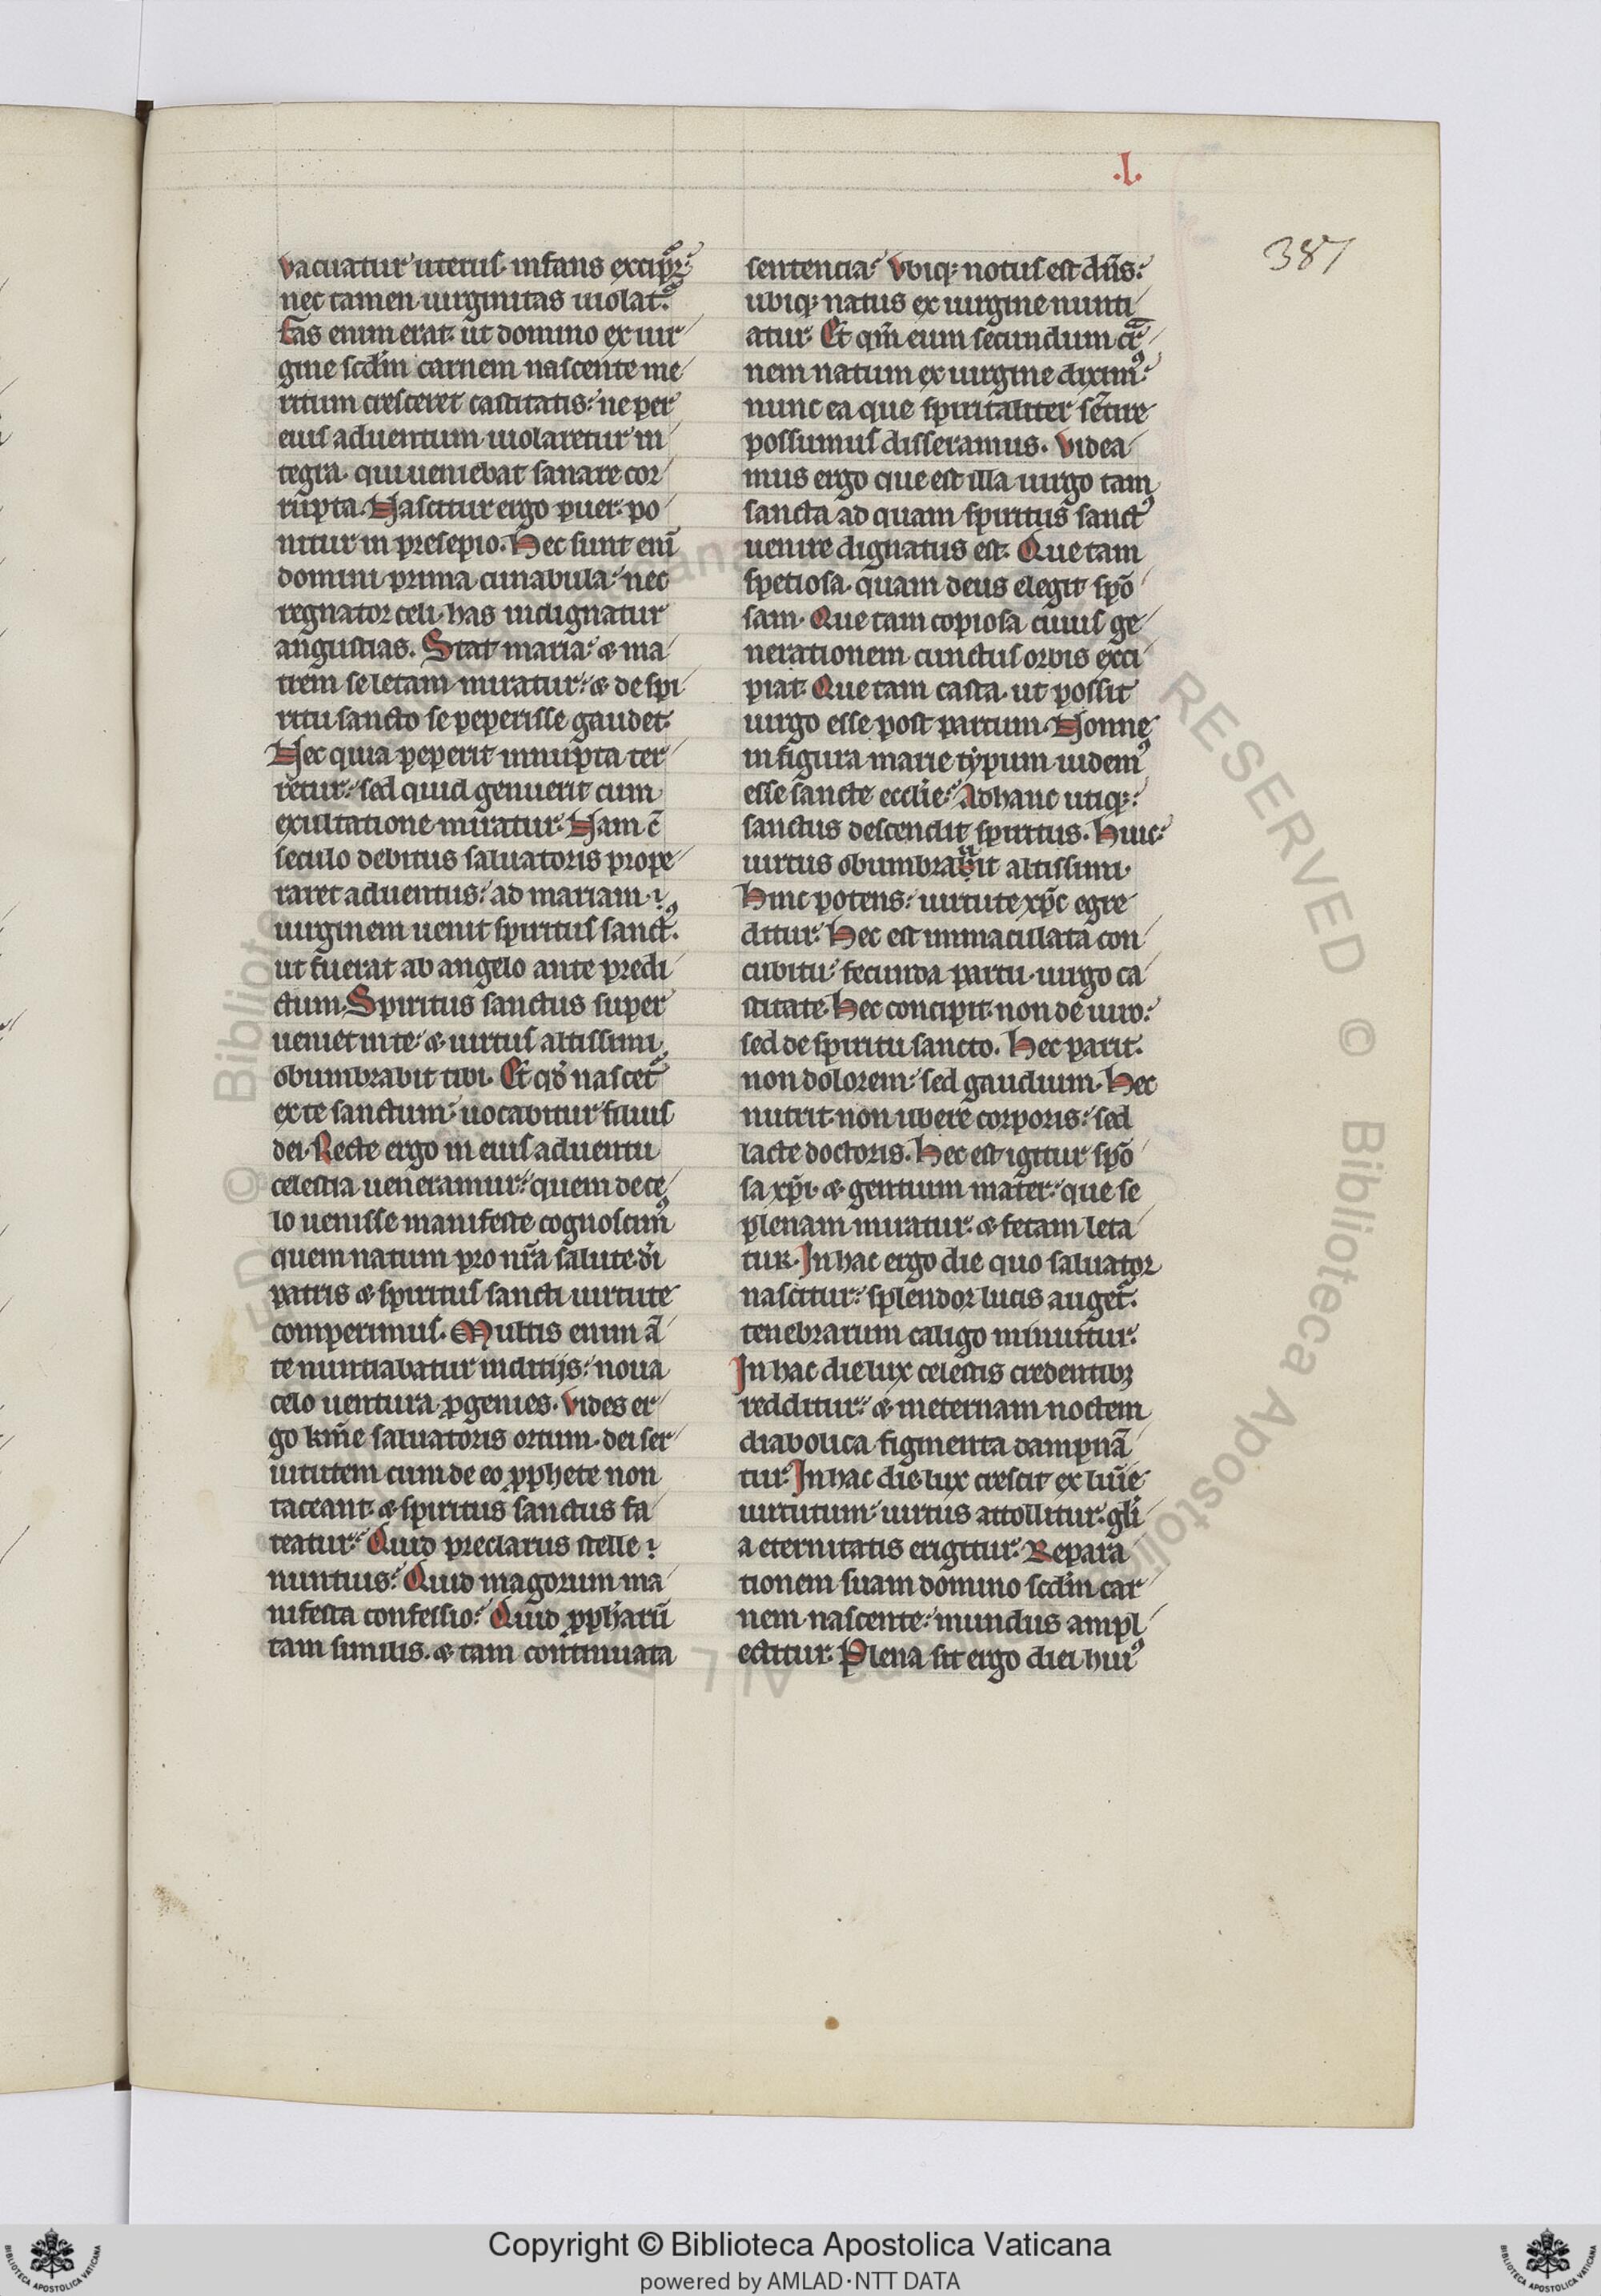 .l.
387
vacuatur uterus. infans excipit᷑.
nec tamen uirginitas uiolat᷑.
Fas enim erat. ut domino ex uir
gine scdm̄ carnem nascente me
ritum cresceret castitatis: ne per
eius aduentum uiolaretur in
tegra. qui ueniebat sanare cor
rupta. Nascitur ergo puer. po
nitur in presepio. Hec sunt eni̅
domini prima cunabula: nec
regnator celi. has indignatur
angustias. Stat maria: & ma
trem se letam miratur: & de spi
ritu sancto se peperisse gaudet.
Hec quia peperit innupta ter
retur: sed quid genuerit cum
exultatione miratur. Nam c̄
seculo debitus saluatoris prope
raret aduentus: ad mariam
uirginem uenit spiritus sanctꝰ.
ut fuerat ab angelo ante predi
ctum. Spiritus sanctus super
ueniet in te: & uirtus altissimi
obumbrabit tibi. Et qd̓ nascet᷑
ex te sanctum: uocabitur filius
dei. Recte ergo in eius aduentu
celestia ueneramur: quem de ce
lo uenisse manifeste cognoscimꝰ
quem natum pro nr̄a salute. di̓
patris & spiritus sancti uirtute
comperimus. Multis enim a̅
te nuntiabatur inditijs: noua
celo uentura ꝓgenies. Vides er
go kme̅ saluatoris ortum. dei ser
uitutem cum de eo ꝓphete non
taceant. & spiritus sanctus fa
teatur: Quid preclarus stelle
nuntius: Quid magorum ma
nifesta confessio: Quid ꝓph̓aru̅
tam similis. & tam continuata
sentencia: Vbiqꝫ notus est dn̅s:
ubiqꝫ natus ex uirgine nunti
atur. Et qm̅ eum secundum cr̄
nem natum ex uirgine diximꝰ:
nunc ea que spiritaliter se̅tire
possumus disseramus. Videa
mus ergo que est illa uirgo tam
sancta ad quam spiritus sanctꝰ
uenire dignatus est. Que tam
spetiosa. quam deus elegit spo̅
sam. Que tam copiosa cuius ge
nerationem cunctus orbis exci
piat. Que tam casta. ut possit
uirgo esse post partum. Nonne
in figura marie typum uidemꝰ
esse sancte eccl̅ie: Ad hanc utiqꝫ:
sanctus descendit spiritus. Huic:
uirtus obumbrauit altissimi.
Hinc potens: uirtute xp̅c egre
ditur. Hec est immaculata con
cubitu: fecunda partu. uirgo ca
stitate. Hec concipit. non de uiro:
sed de spiritu sancto. Hec parit.
non dolorem: sed gaudium. Hec
nutrit. non ubere corporis: sed
lacte doctoris. Hec est igitur spo̅
sa xp̅i. & gentium mater: que se
plenam miratur. & fetam leta
tur. In hac ergo die quo saluator
nascitur: splendor lucis auget᷑.
tenebrarum caligo minuitur.
In hac die lux celestis credentibꝫ
redditur: & in eternam noctem
diabolica figmenta dampna̅
tur. In hac die lux crescit ex lu̅ie
uirtutum: uirtus attollitur. gl̓i
a eternitatis erigitur. Repara
tionem suam domino scdm̄ car
nem nascente: mundus ampl
ectitur. Plena sit ergo diei huiꝰ
© Biblioteca Apostolica Vaticana ALL RIGHTS RESERVED
Copyright © Biblioteca Apostolica Vaticana
powered by AMLAD·NTT DATA
BIBLIOTECA APOSTOLICA VATICANA
BIBLIOTECA APOSTOLICA VATICANA